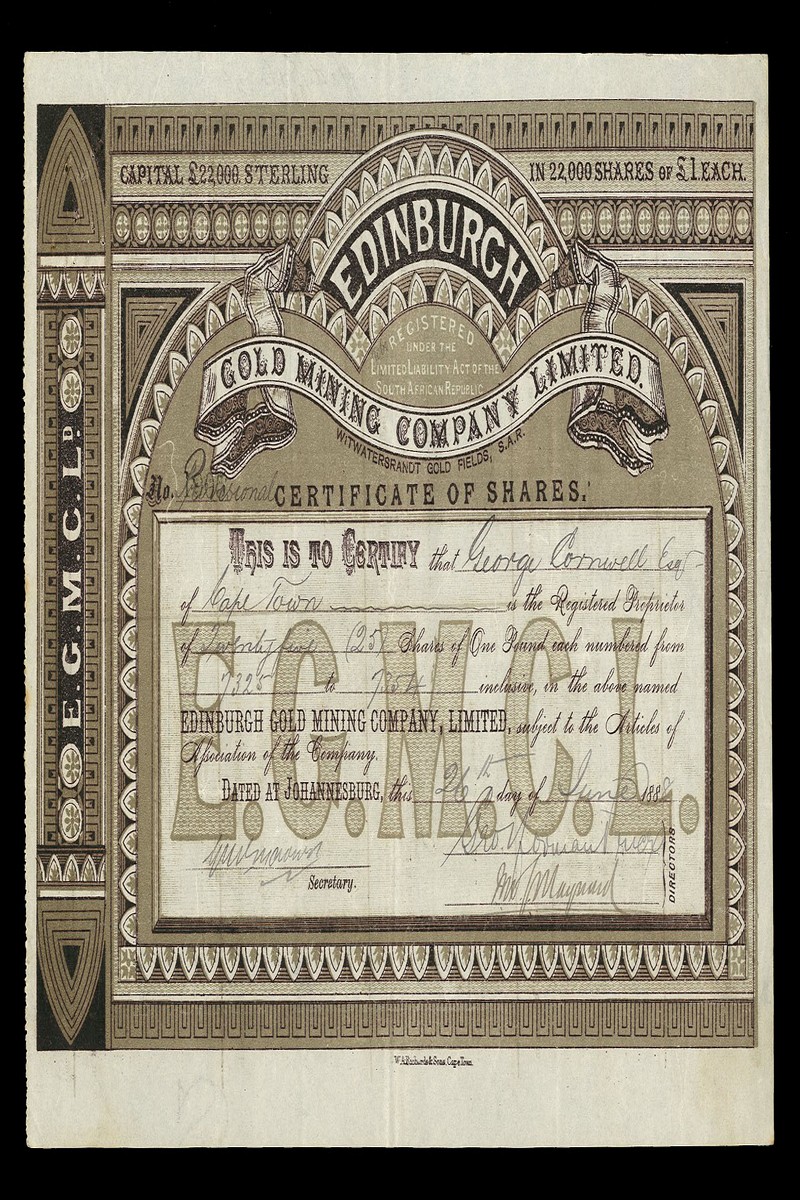 CAPITAL £22,000 STERLING
IN 22,000 SHARES OF £1. EACH.
EDINBURGH
REGISTERED
UNDER THE
LIMITED LIABILITY ACT OF THE
SOUTH AFRICAN REPUBLIC
GOLD MINING COMPANY LIMITED.
WITWATERSRANDT GOLD FIELDS, S.A.R.
No. Provisional CERTIFICATE OF SHARES.
THIS IS TO CERTIFY that George Cornwell Esqr
of Cape Town is the Registered Proprietor
of Twenty five (25) Shares of One Pound each numbered from
to inclusive, in the above named
EDINBURGH GOLD MINING COMPANY, LIMITED, subject to the Articles of
Association of the Company.
DATED AT JOHANNESBURG, this 26th day of June 188
Secretary.
DIRECTORS
E.G.M.C.L.
E.G.M.C.LD.
W.A. Richards & Sons, Cape Town.